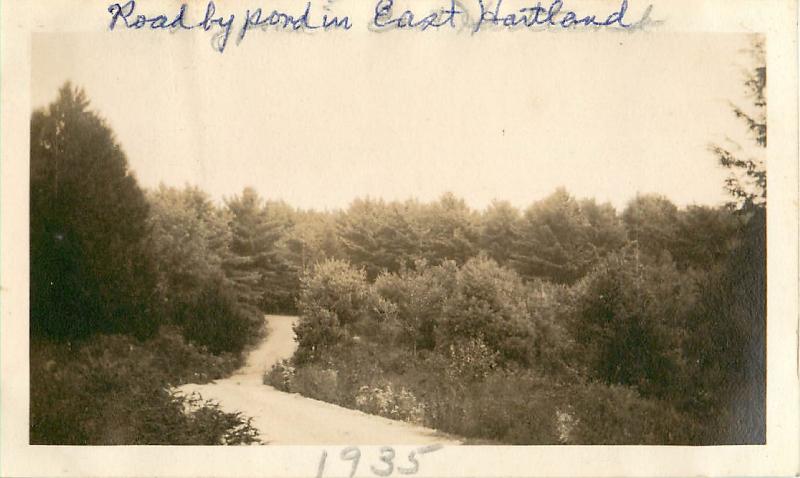 Road by pond in East Hartland
1935